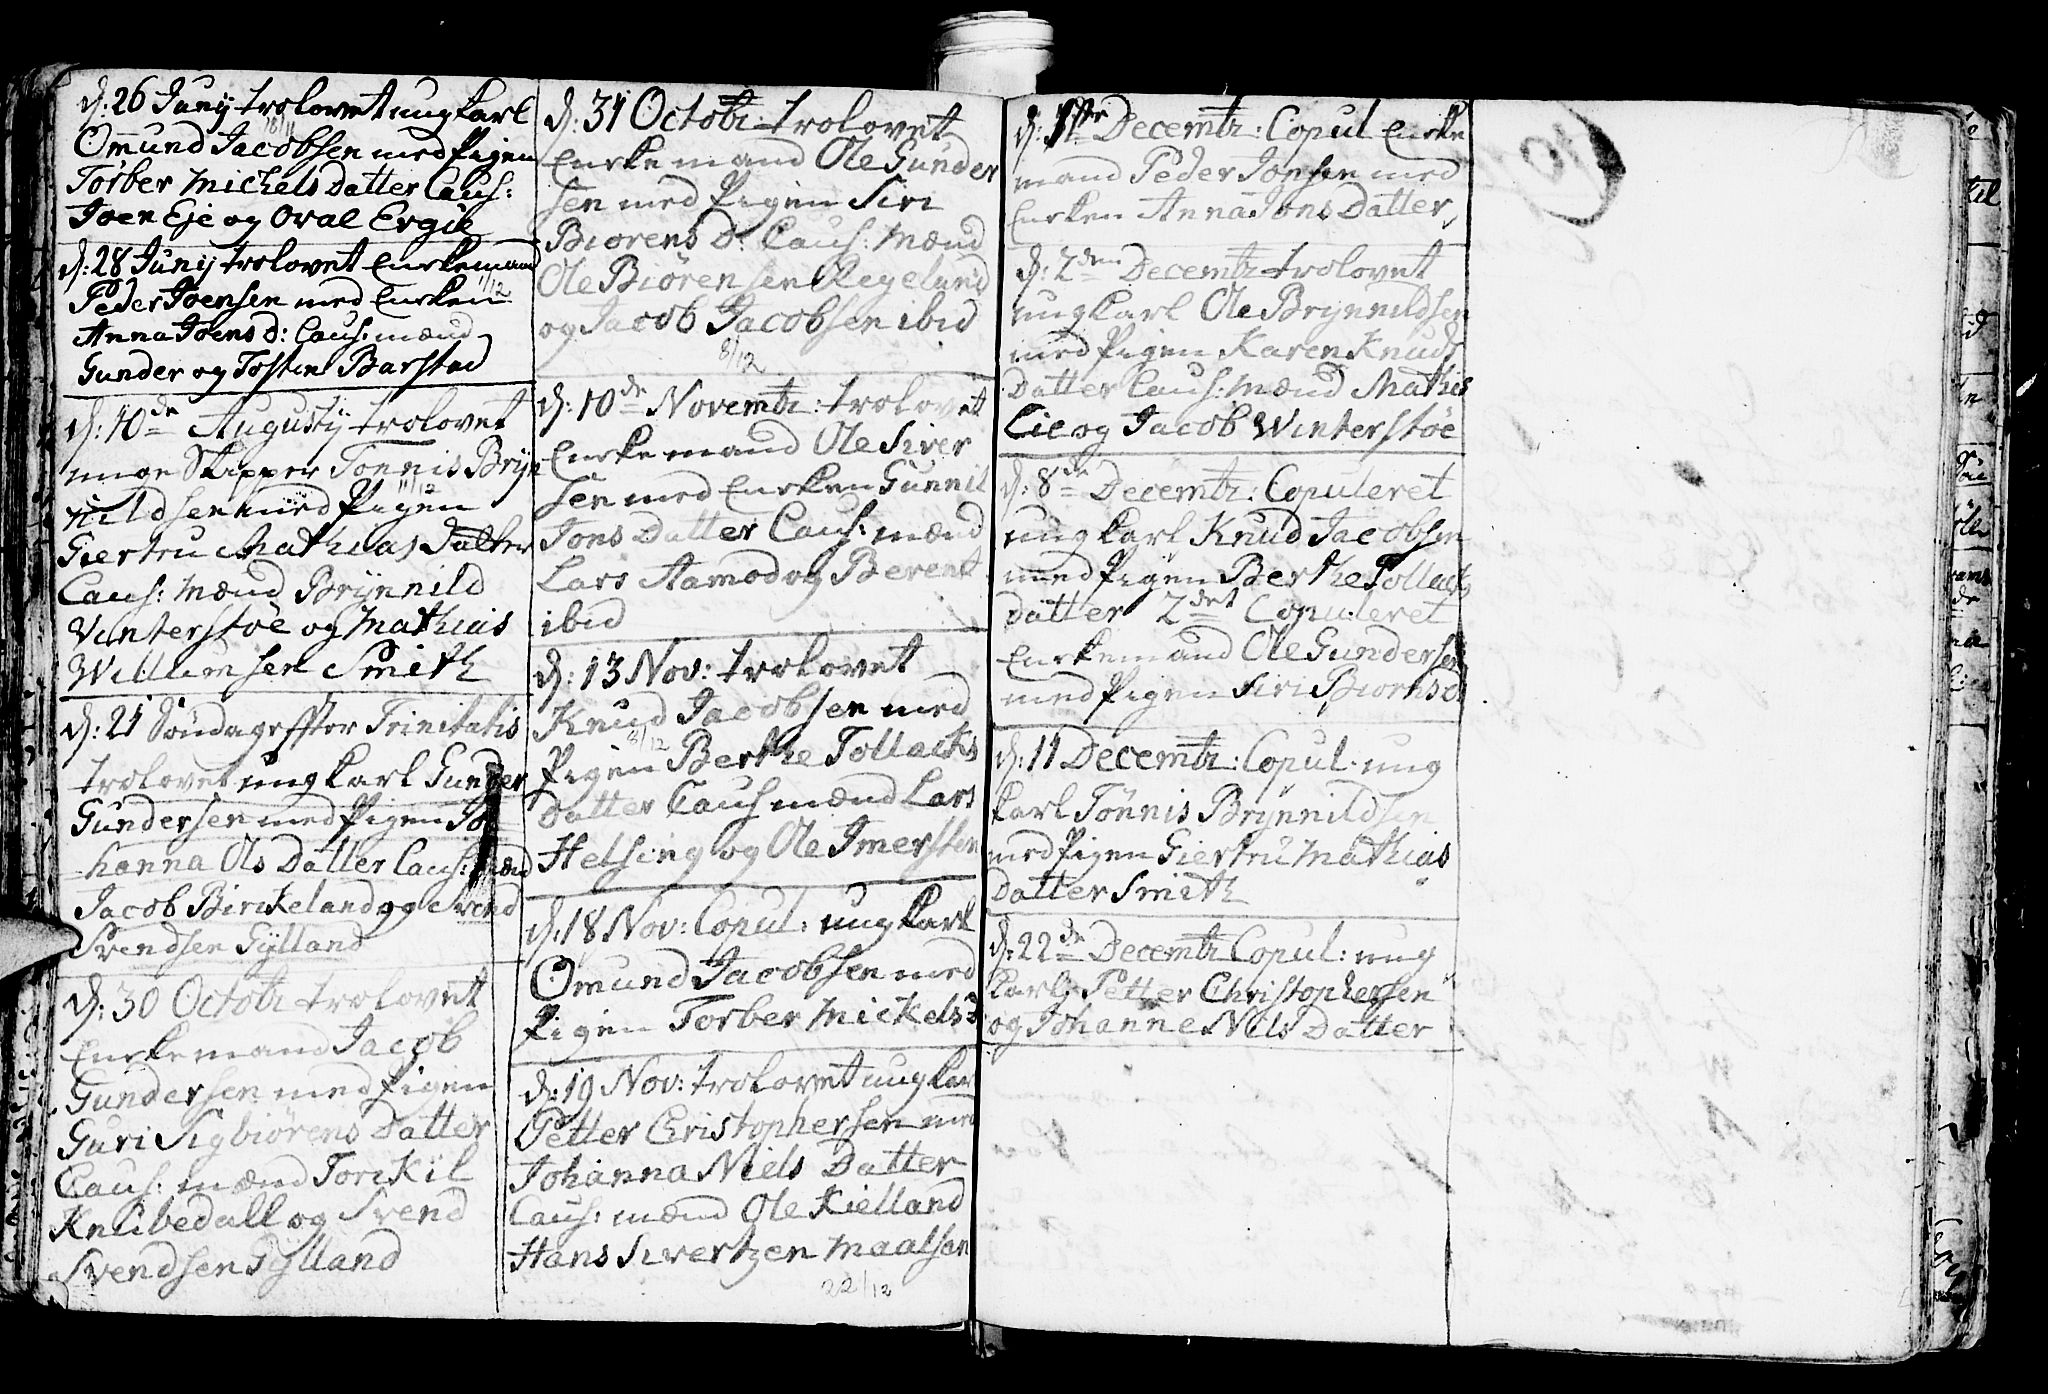 d: 26 Junij trolovet ungkarl
18/11
Omund Jacobsen med Pigen
Torber Michels Datter Caus:
Joen Eje og Oval Ergie
d: 28 Junij trolovet Enkemand
1/12
Peder Joensen med Enken
Anna Joens d: Caus: mænd
Gunder og Tosten Barstad
d: 10de Augustij trolovet
unge Skipper Tonnis Bryn
11/12
nildsen med Pigen
Giertru Mathias Datter
Caus: Mænd Brynnild
Vinterstøe og Mathias
Willumsen Smith
d: 21 Søndag effter Trinitatis
trolovet ungkarl Gunder
Gundersen med Pigen Jo
hanna Ols Datter Caus: Mænd
Jacob Birckeland og Svend
Svendsen Gylland
d: 30 Octobr trolovet
Enkemand Jacob
Gundersen med Pigen
Guri Sigbiørens Datter
Caus: mænd Torckil
Knibedall og Svend
Svendsen Gylland
d: 31 Octobr: trolovet
Enkemand Ole Gunder
sen med Pigen Siri
Biorens D: Caus: Mænd
Ole Biørensen Regeland
og Jacob Jacobsen ibid
8/12
d: 10de Novembr: trolovet
Enkemand Ole Siver
sen med Enken Gunnil
Jons Datter Caus: mænd
Lars Aamod og Berent
ibid
d: 13 Nov: trolovet
Knud Jacobsen med
8/12
Pigen Berthe Tollacks
Datter Caus mænd Lars
Helsing og Ole Imersten
d: 18 Nov: Copul: ungkarl
Omund Jacobsen med
Pigen Torber Mickels d
d: 19 Nov: trolovet ungkar
Petter Christophersen med
Johanna Niels Datter
Caus: mænd Ole Kielland
Hans Sivertzen Maalsan
22/12
d: 1ste Decembr: Copul Enke
mand Peder Jonsen med
Enken Anna Jons Datter
d: 2den Decembr trolovet
ungkarl Ole Brynnildsen
med Pigen Karen Knuds
Datter Caus: Mænd Mathis
Lie og Jacob Winterstøe
d: 8de Decembr: Copuleret
ungkarl Knud Jacobsen
med Pigen Berthe Tollacks
Datter 2det Copuleret
Enkemand Ole Gundersen
med Pigen Siri Biorns d
d: 11 Decembr: Copul: ung
karl Tönnis Brynnildsen
med Pigen Giertru Mathias
Datter Smith
d: 22de Decembr Copul: ung
karl Petter Christophersen
og Johanne Niels Datter